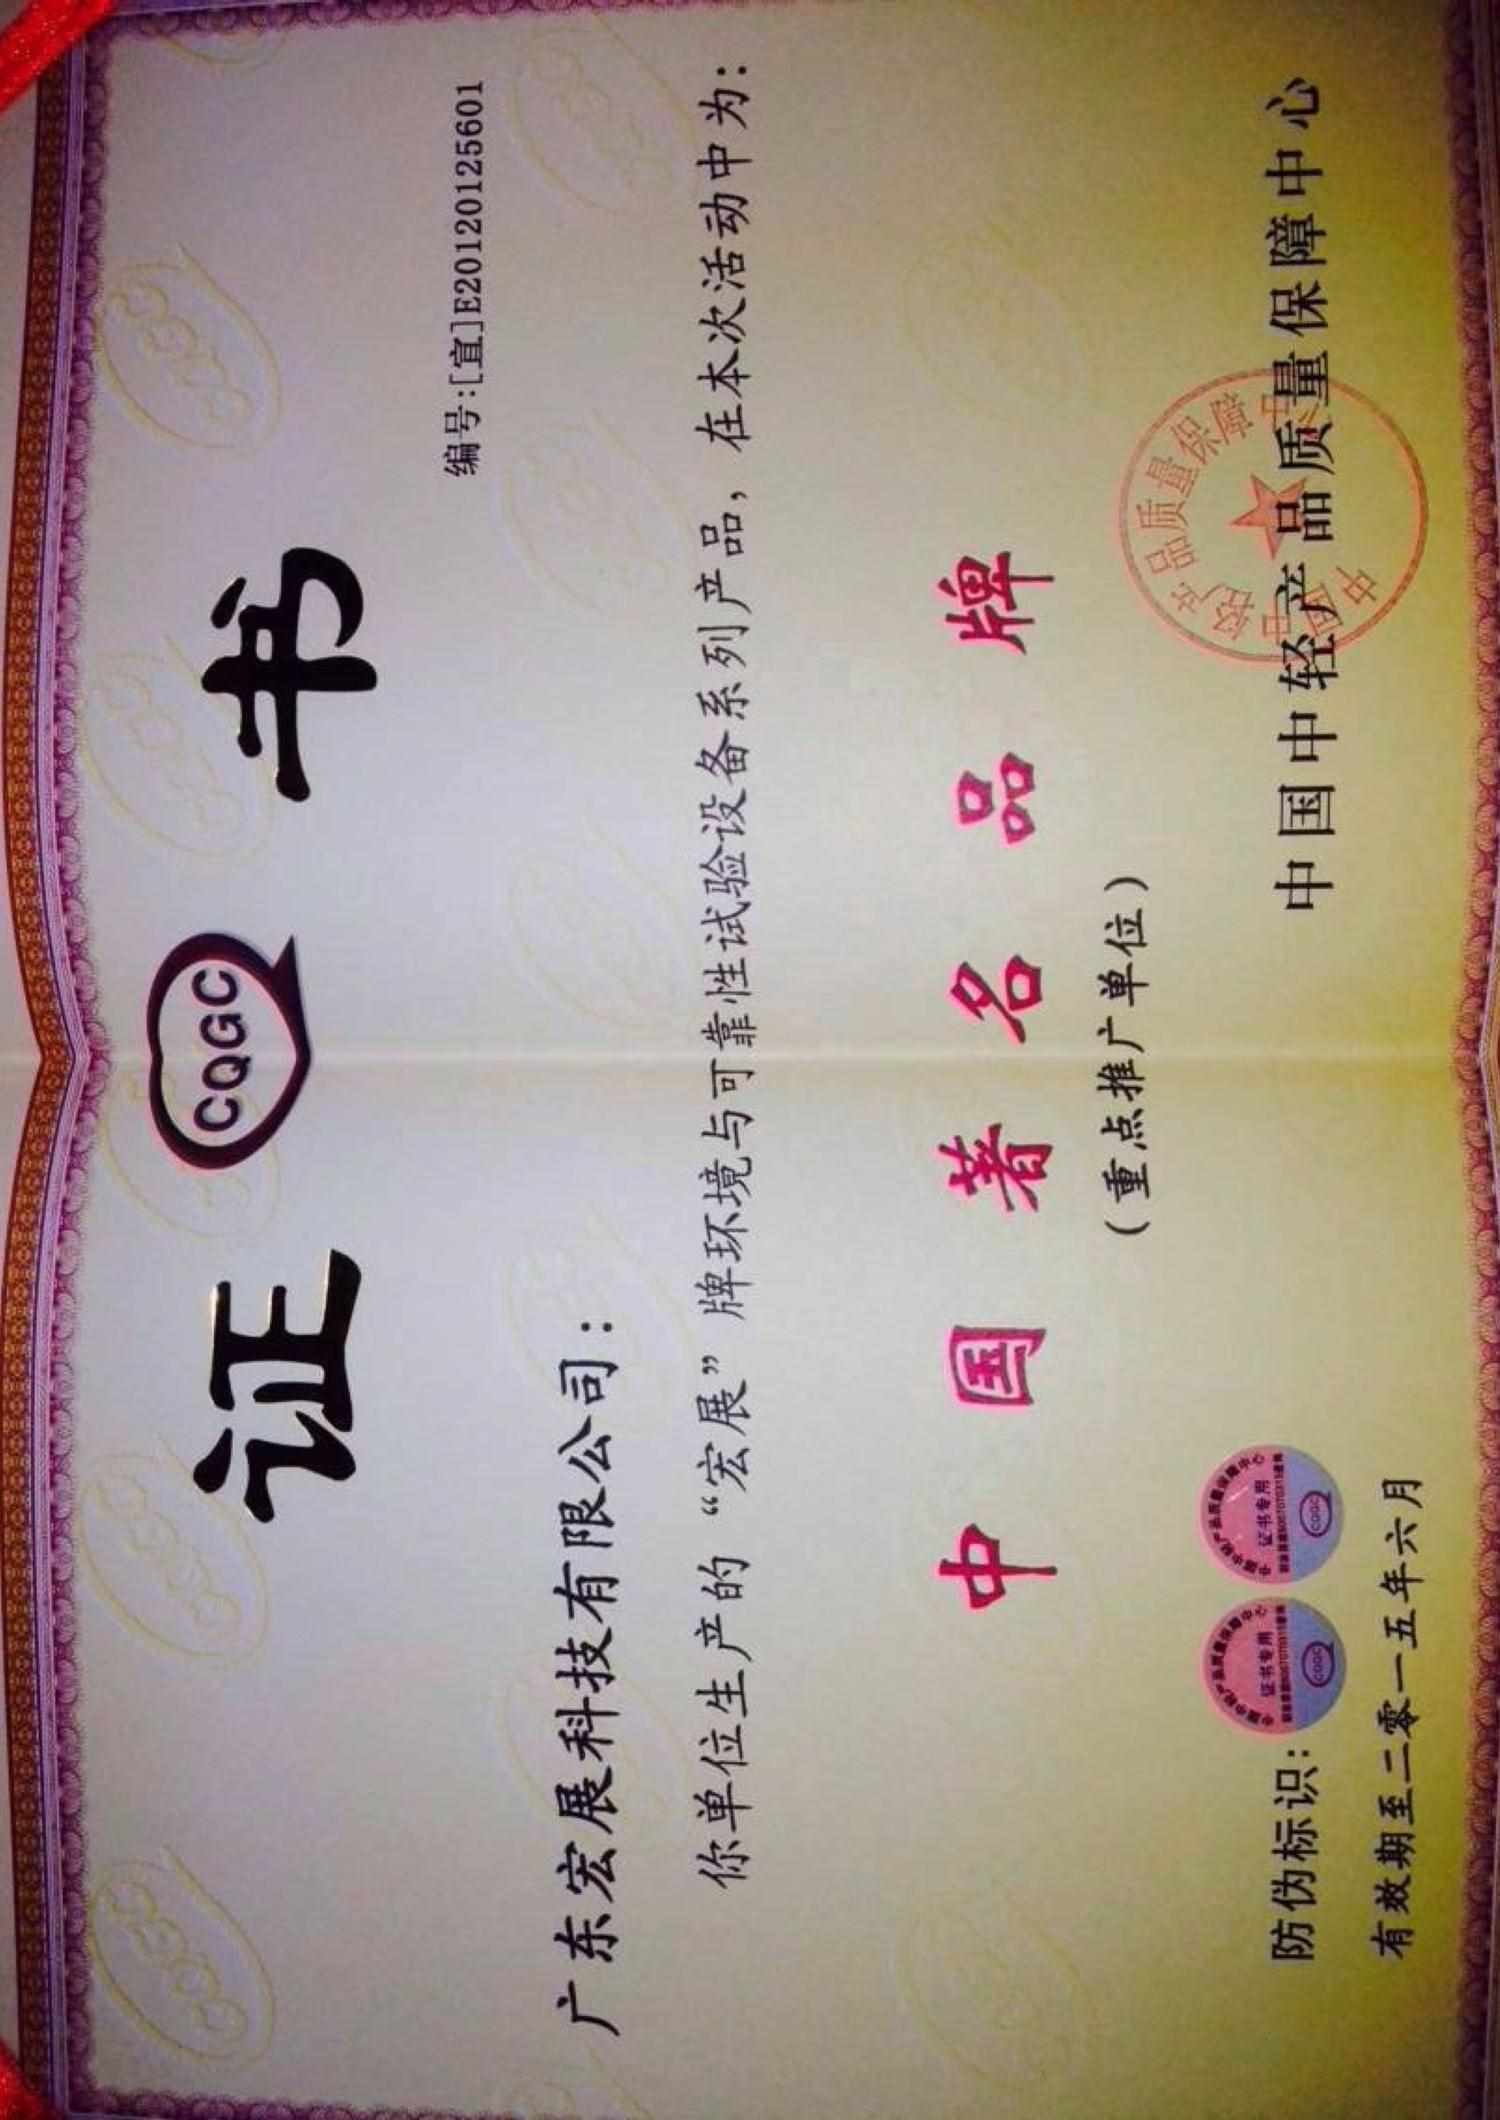 证 CQGC 书
编号:[宣]E20120125601
广东宏展科技有限公司：
你单位生产的“宏展”牌环境与可靠性试验设备系列产品，在本次活动中为：
中国著名品牌
（重点推广单位）
防伪标识：
证书专用
CQGC
证书专用
CQGC
中国中轻产品质量保障中心
中国中轻产品质量保障中心
有效期至二零一五年六月